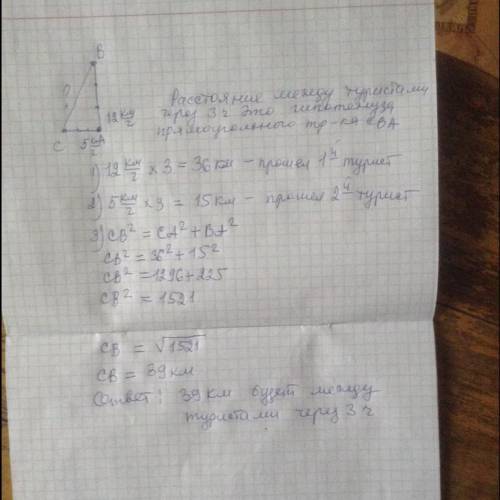 B
?
12 км/ч
C 5 км/ч A
Расстояние между туристами
через 3 ч Это гипотенуза
прямоугольного тр-ка CBA
1) 12 км/ч × 3 = 36 км – прошел 1й турист
2) 5 км/ч × 3 = 15 км – прошел 2й турист
3) CB² = CA² + BA²
CB² = 36² + 15²
CB² = 1296 + 225
CB² = 1521
CB = √1521
CB = 39 км
Ответ: 39 км будет между
туристами через 3 ч